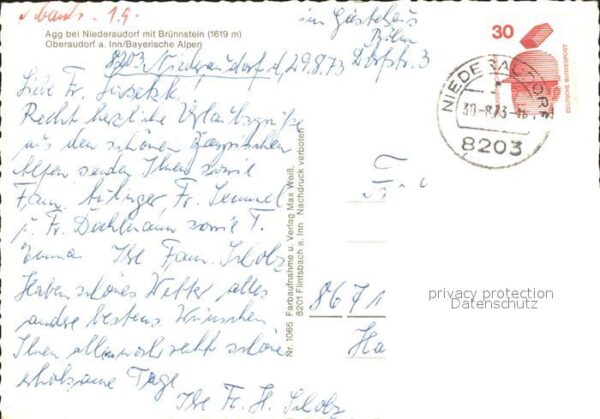 1.9.
Agg bei Niederaudorf mit Brünnstein (1619 m)
Oberaudorf a. Inn/Bayerische Alpen
im Gästehaus
8203 Niederaudorf, d. 29.8.73 Dorfstr. 3
Liebe Fr.
Recht herzliche Urlaubsgrüße
aus den schönen Bayrischen
Alpen senden Ihnen sowie
Fam. Fr. Semmel
u. Fr. Dahlmann sowie T.
Emma Ihre Fam. Scholz
Haben schönes Wetter alles
andre bestens. Wünschen
Ihnen alle noch recht schöne
erholsame Tage
Ihre Fr. H. Scholz
Nr. 1065 Farbaufnahme u. Verlag Max Weiß,
8201 Flintsbach a. Inn Nachdruck verboten
30
DEUTSCHE BUNDESPOST
NIEDERAUDORF
30.-8.73-16
8203
8671
Ha
privacy protection
Datenschutz